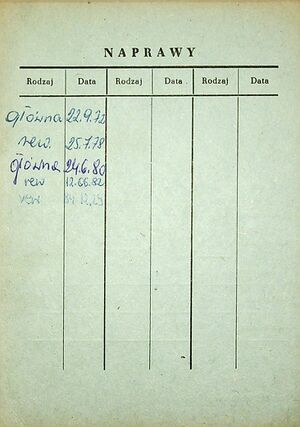 NAPRAWY
Rodzaj Data Rodzaj Data Rodzaj Data
główna 22.9.72
rew. 25.7.78
główna 24.6.80
rew 12.66.82
rew